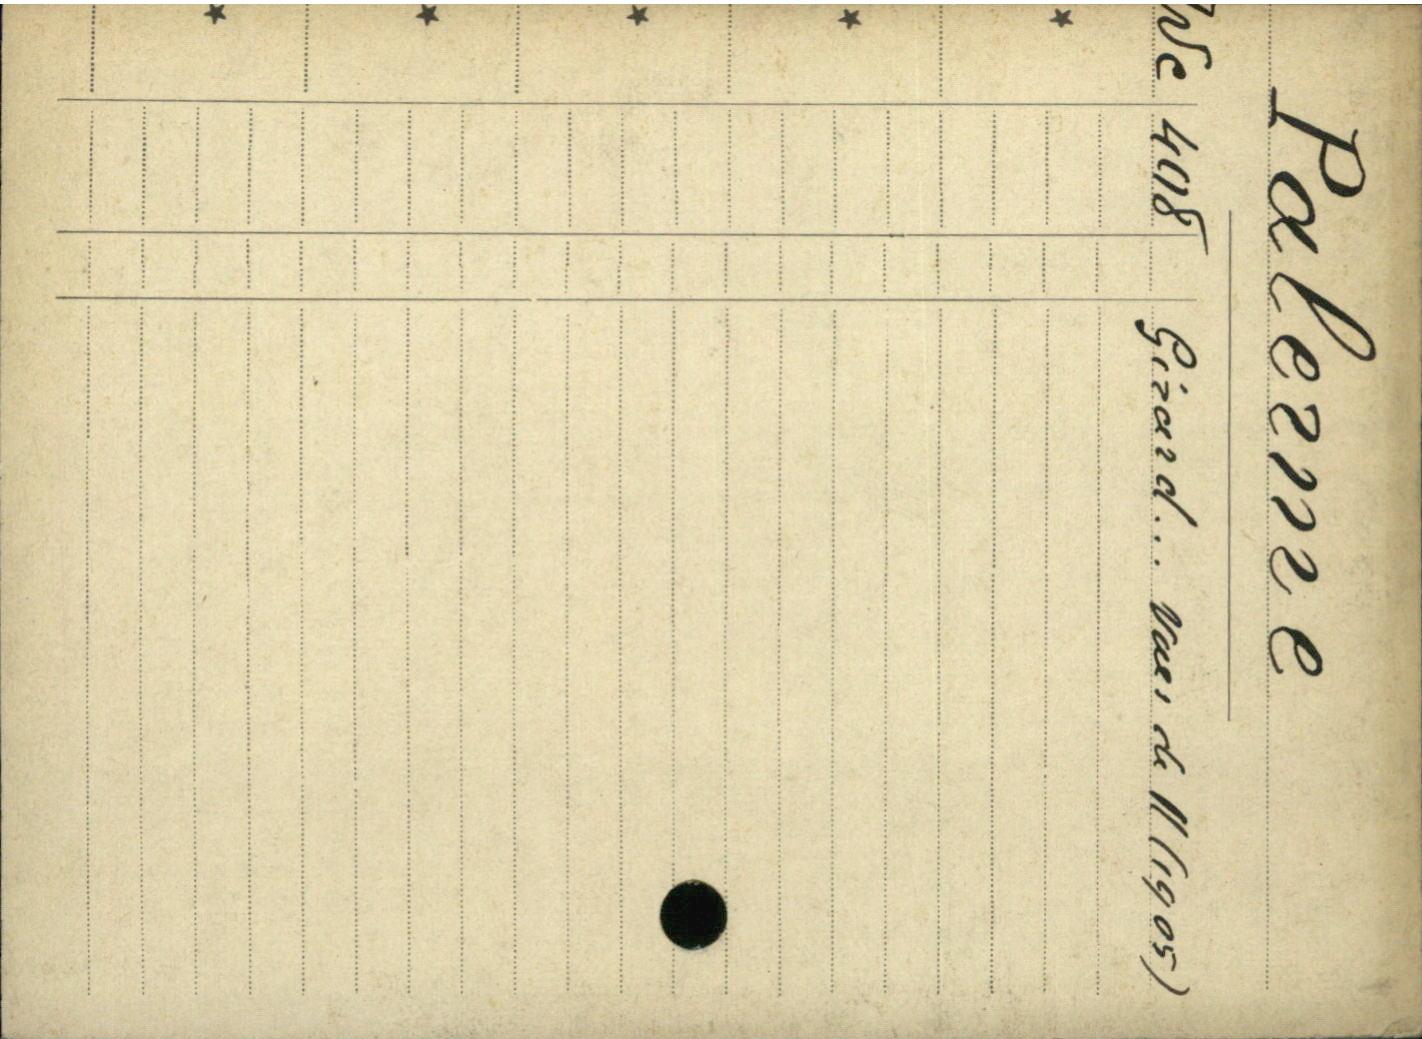 Palerme
Wc 408 Girard... Vues de // (1905)